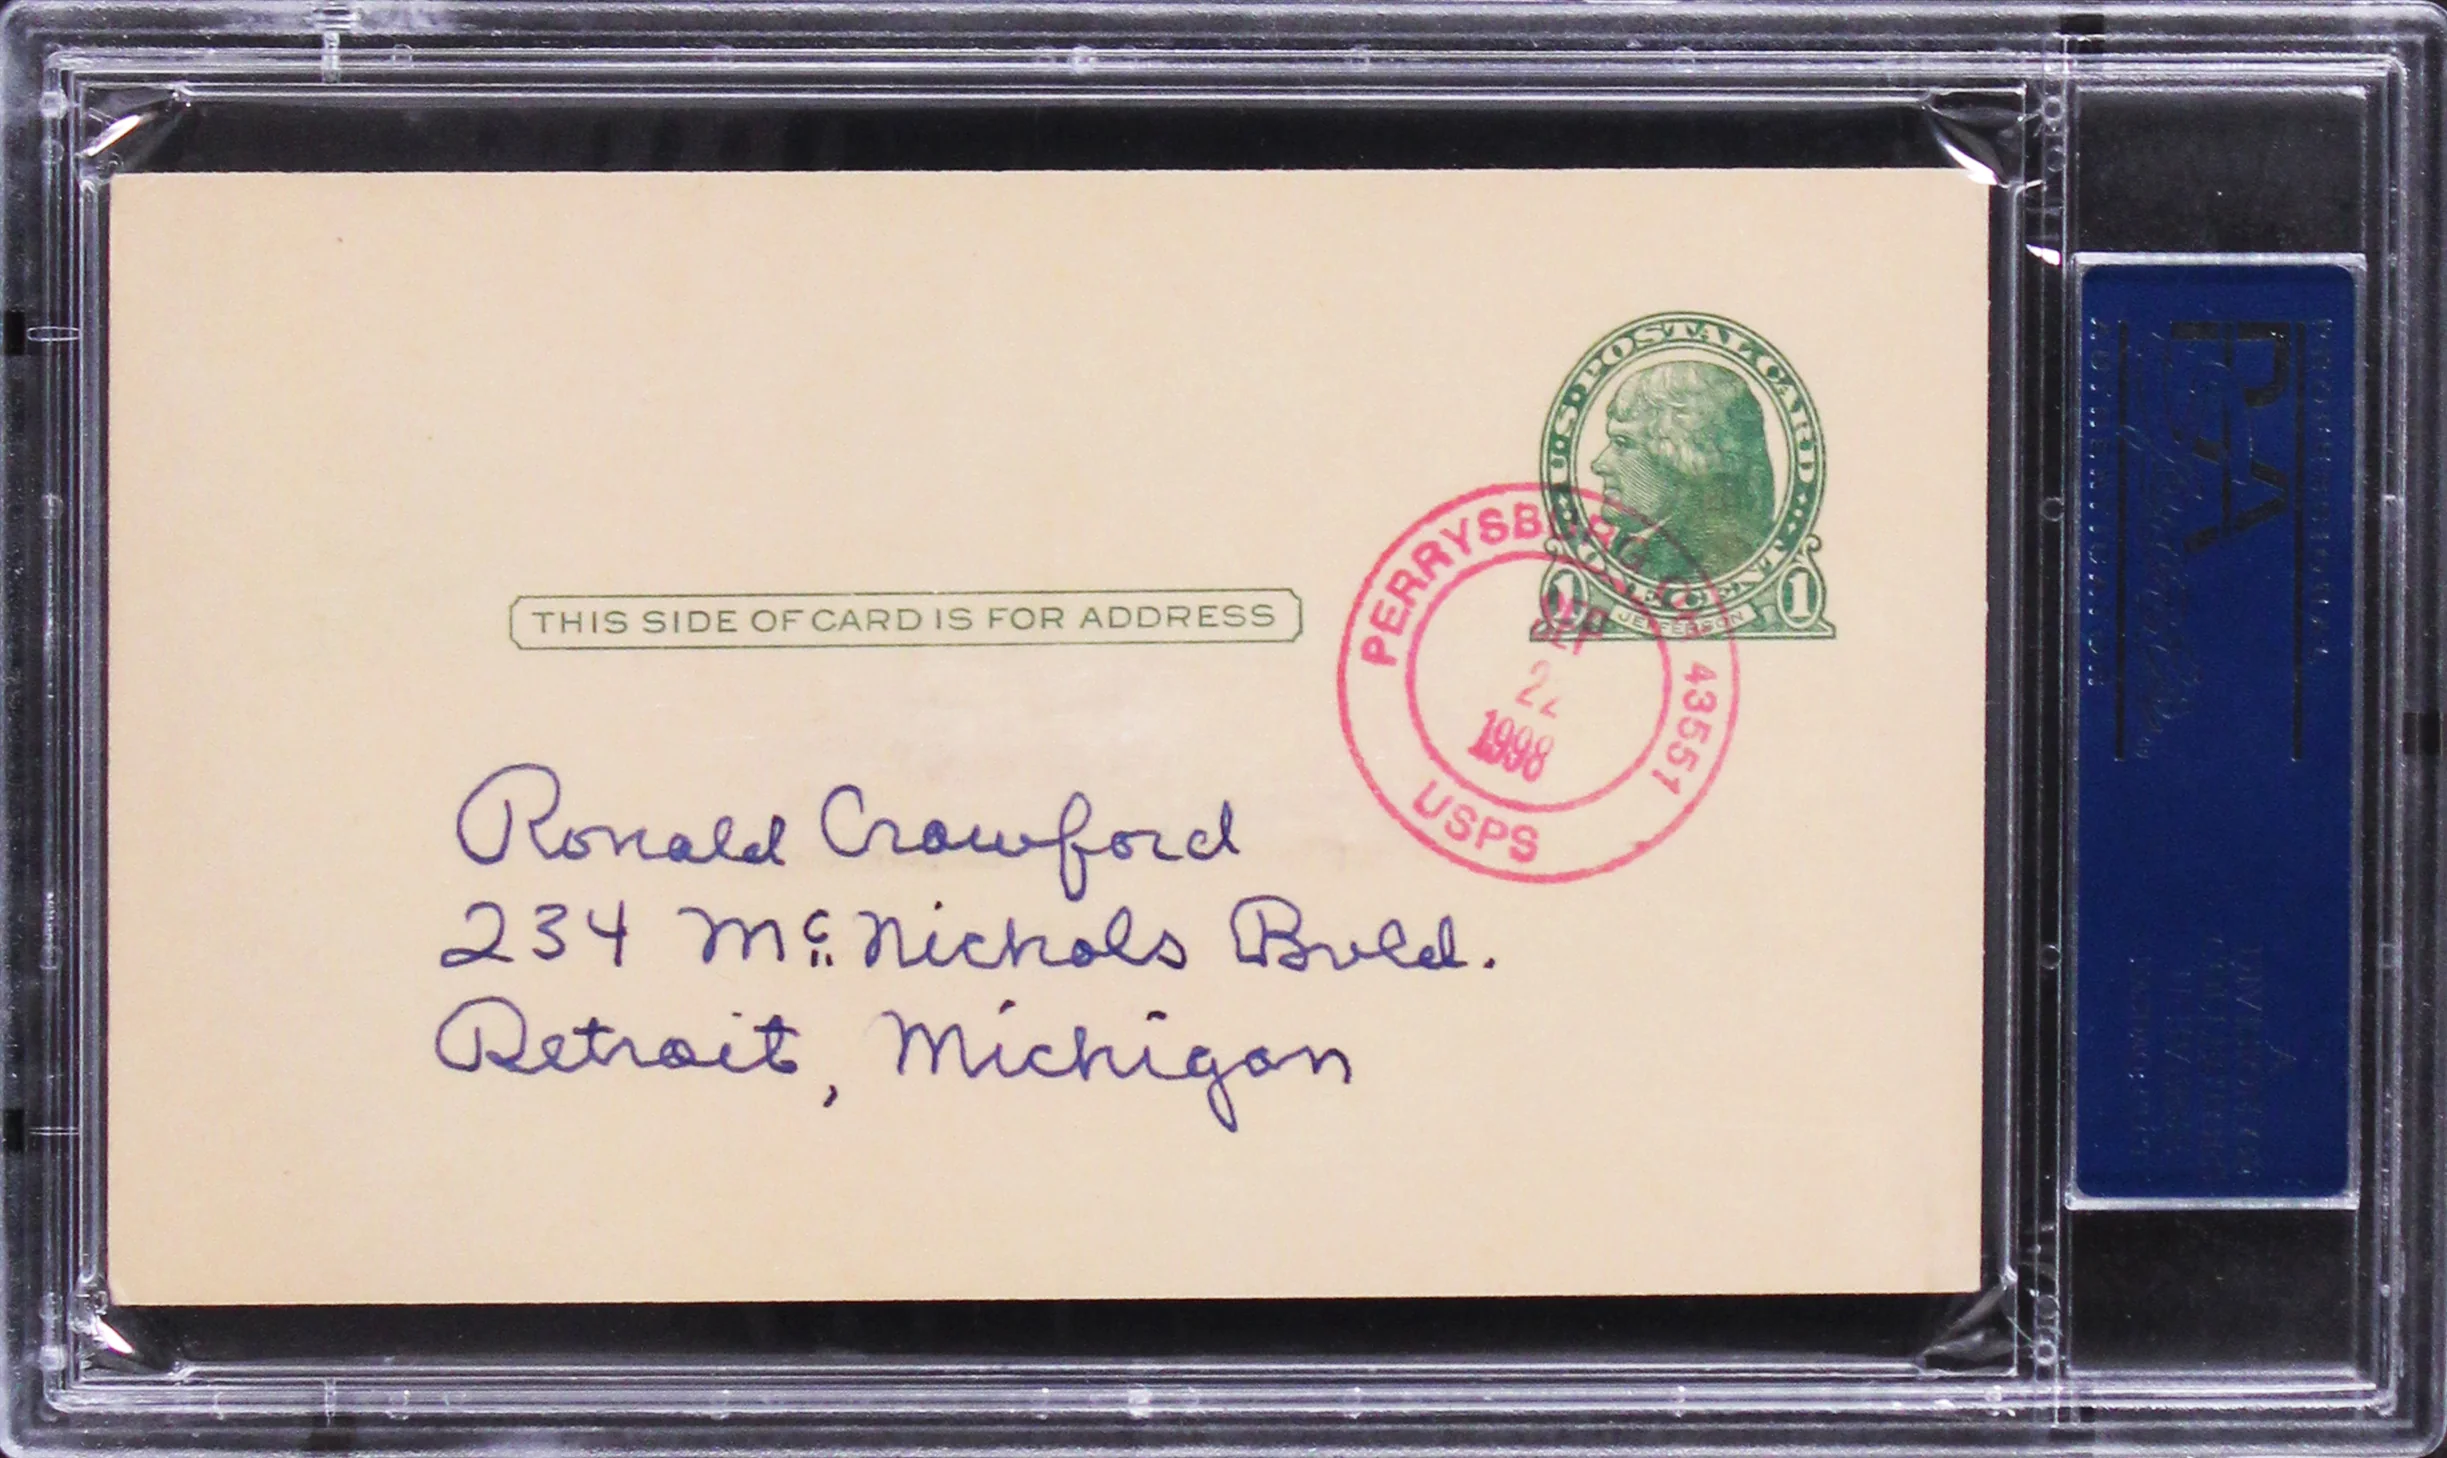 U.S. POSTAL CARD
ONE CENT
1 1
JEFFERSON
THIS SIDE OF CARD IS FOR ADDRESS
PERRYSBURG 43551
SEP
22
1998
USPS
Ronald Crawford
234 Mc. Nichols Bvld.
Detroit, Michigan
PSA